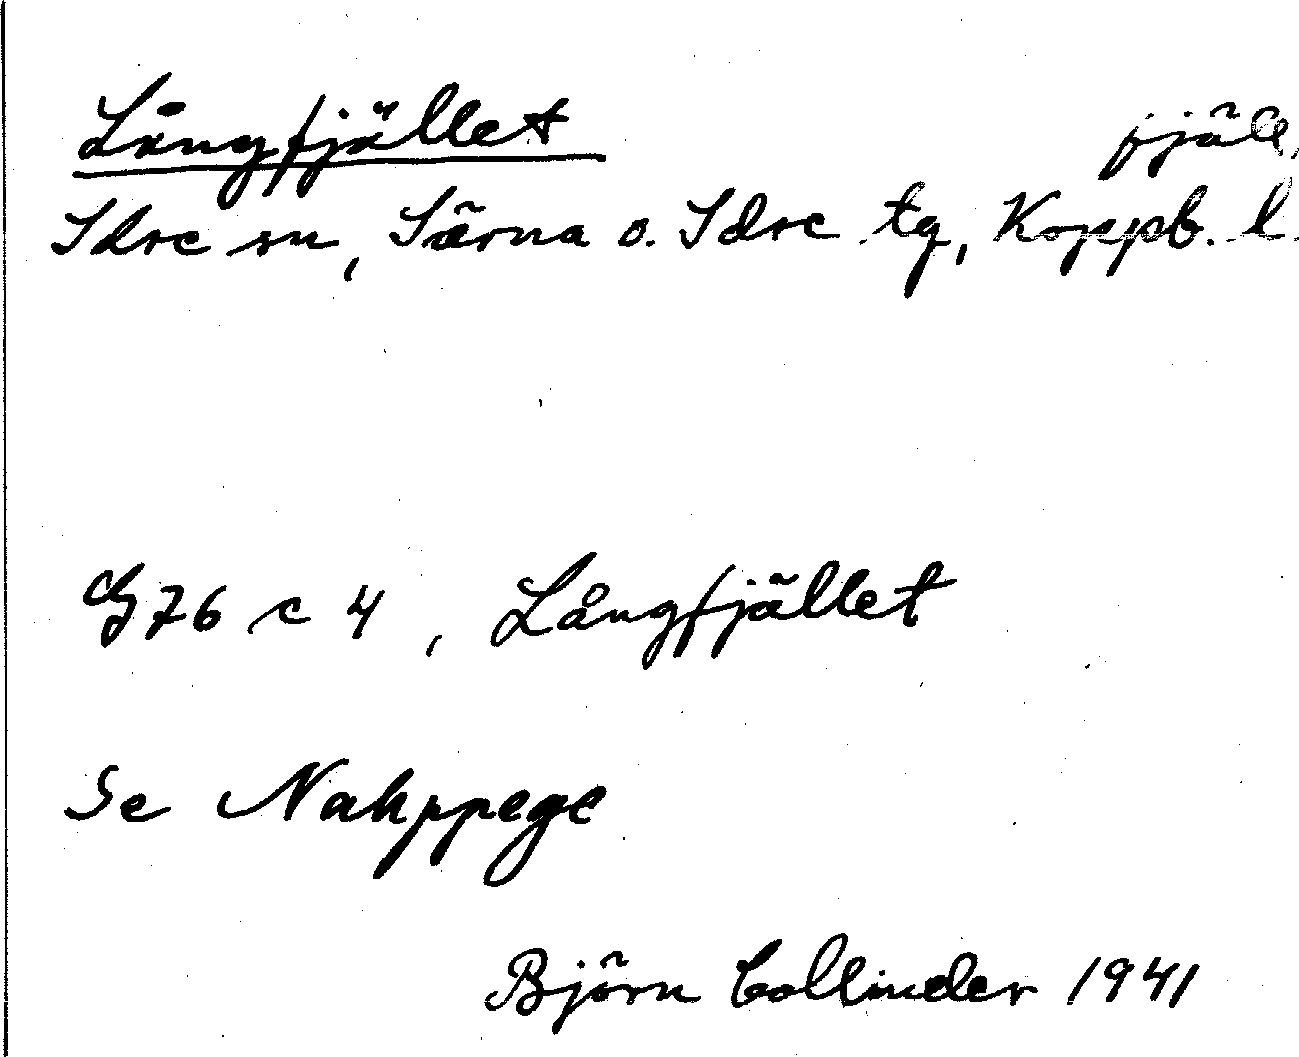 Långfjället fjäll,
Idre sn, Särna o. Idre tg, Koppb. l.
G 76 c 4, Långfjället
Se Nahppege
Björn Collinder 1941